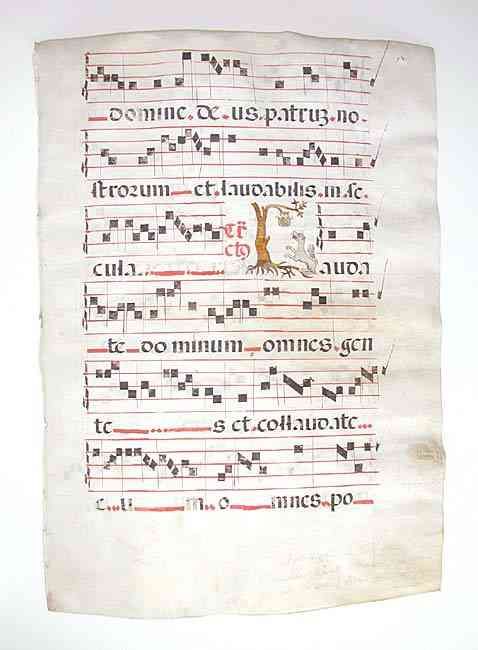 domine. de. us. patruz. no.
strorum et. laudabilis. in. se.
cula. Tr̄ ctꝰ Lauda
te do minum omnes. gen
te s et. collaudate
e. u m. o mnes. po